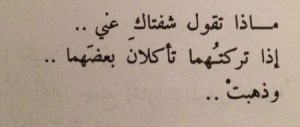 مـاذا تقول شفتاكِ عني ..
إذا تركتـُهما تأكلان بعضَهما ..
وذهبتْ ..